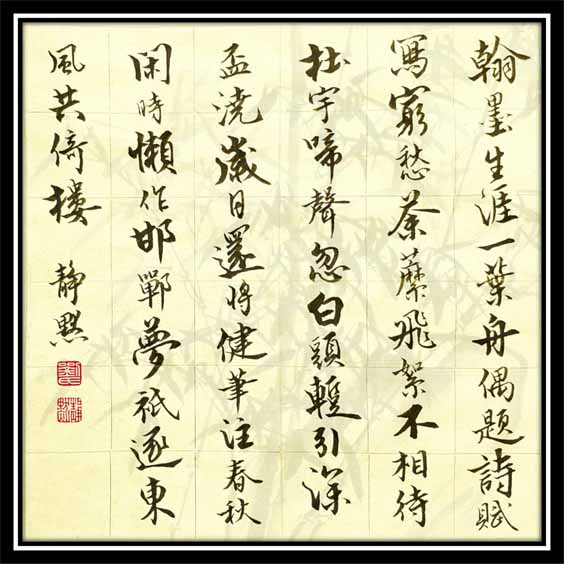 翰墨生涯一葉舟偶題詩賦
寫窮愁荼蘼飛絮不相待
杜宇啼聲忽白頭輕引深
盃澆歲日還將健筆注春秋
閑時懶作邯鄲夢祇逐東
風共倚樓 靜默